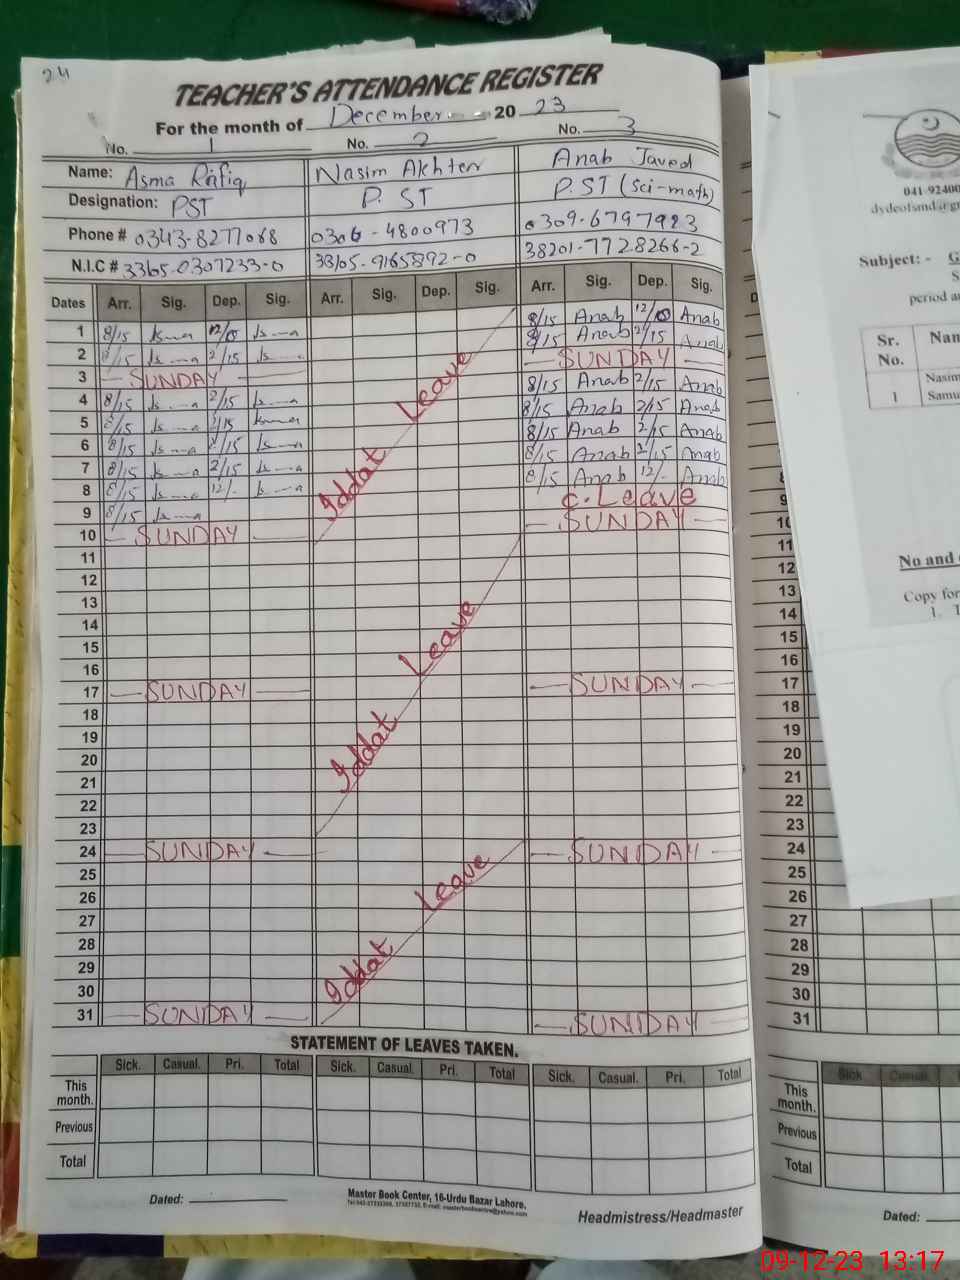 24
TEACHER'S ATTENDANCE REGISTER
For the month of December 20 23
No. 1 No. 2 No. 3
Name: Asma Rafiq Nasim Akhter Anab Javed
Designation: PST P. ST P. ST (sci-math)
Phone # 0343-8277068 0306-4800973 0309-6797923
N.I.C # 33105-0307233-0 33105-9165892-0 38201-7728266-2
Dates Arr. Sig. Dep. Sig. Arr. Sig. Dep. Sig. Arr. Sig. Dep. Sig.
1 8/15 Asma 12/0 Asma 8/15 Anab 12/0 Anab
2 8/15 Asma 2/15 Asma 8/15 Anab 2/15 Anab
3 SUNDAY SUNDAY
4 8/15 Asma 2/15 Asma 8/15 Anab 2/15 Anab
5 8/15 Asma 2/15 Asma 8/15 Anab 2/15 Anab
6 8/15 Asma 2/15 Asma 8/15 Anab 2/15 Anab
7 8/15 Asma 2/15 Asma 8/15 Anab 2/15 Anab
8 8/15 Asma 12/- Asma 8/15 Anab 12/- Anab
9 8/15 Asma C. Leave
10 SUNDAY SUNDAY
Iddat Leave
11
12
13
14
15
16
17 SUNDAY SUNDAY
18
19
20
21
22
23
Iddat Leave
24 SUNDAY SUNDAY
25
26
27
28
29
30
31 SUNDAY SUNDAY
Iddat Leave
STATEMENT OF LEAVES TAKEN.
Sick. Casual. Pri. Total Sick. Casual. Pri. Total Sick. Casual. Pri. Total
This month.
Previous
Total
Dated:
Master Book Center, 16-Urdu Bazar Lahore.
Headmistress/Headmaster
041-92400
dydeofsmd@gr
Subject: - G
S
period a
Sr. No. Nam
1 Nasim
Samu
No and
Copy for
1. T
8
9
10
11
12
13
14
15
16
17
18
19
20
21
22
23
24
25
26
27
28
29
30
31
Sick Casual
This month.
Previous
Total
Dated:
09-12-23 13:17